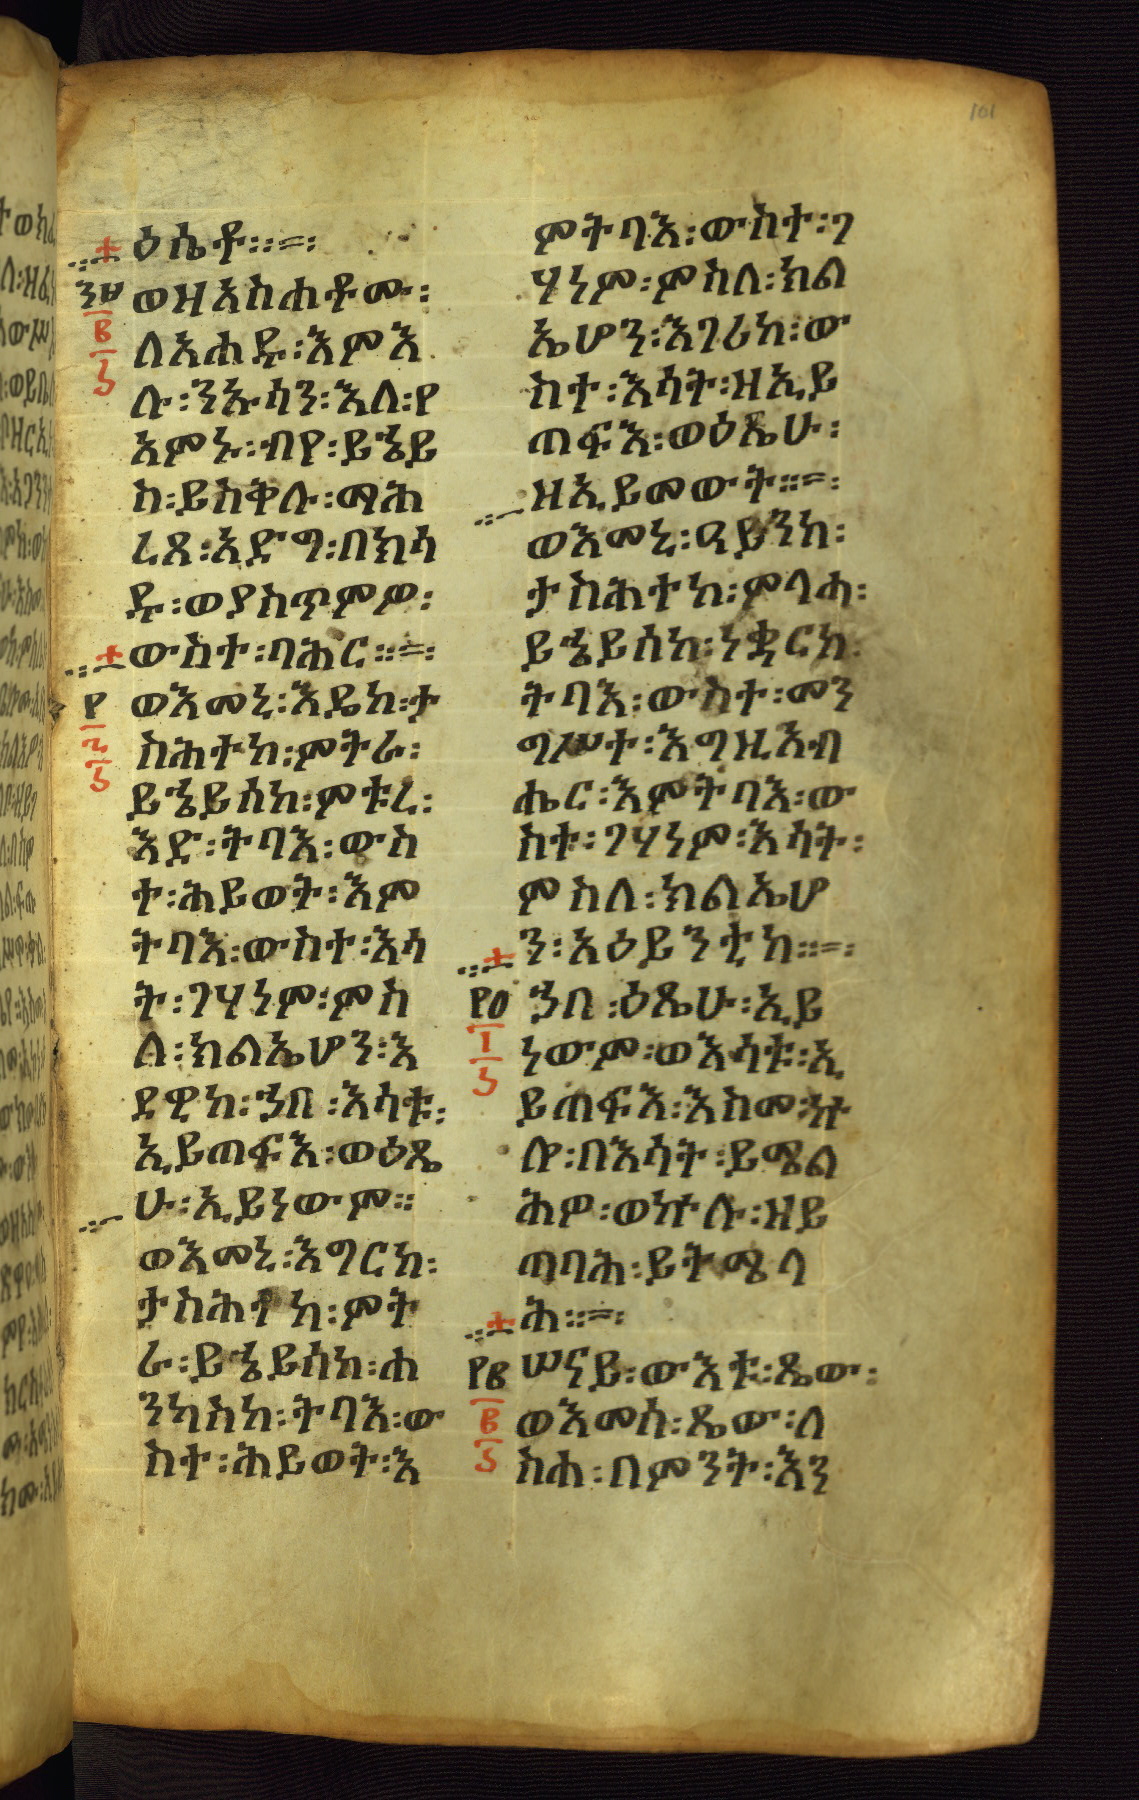 101
ዕሴቶ፡፡=፡
ወዘአስሐቶሙ፡
ለአሐዱ፡እምእ
ሉ፡ንኡሳን፡እለ፡የ
አምኑ፡ብየ፡ይኄይ
ስ፡ይስቅሉ፡ማሕ
ረጸ፡አድግ፡በክሳ
ዱ፡ወያስጥምዎ፡
ውስተ፡ባሕር፡፡=፡
ወእመኒ፡እዴከ፡ታ
ስሕተከ፡ምትራ፡
ይኄይሰከ፡ምቱረ፡
እድ፡ትባእ፡ውስ
ተ፡ሕይወት፡እም
ትባእ፡ውስተ፡እሳ
ት፡ገሃነም፡ምስ
ለ፡ክልኤሆን፡እ
ደዊከ፡ኀበ፡እሳቱ፡
ኢይጠፍእ፡ወዕጼ
ሁ፡ኢይነውም፡፡
ወእመኒ፡እግርከ፡
ታስሕተከ፡ምት
ራ፡ይኄይሰከ፡ሐ
ንካስከ፡ትባእ፡ው
ስተ፡ሕይወት፡እ
ምትባእ፡ውስተ፡ገ
ሃነም፡ምስለ፡ክል
ኤሆን፡እገሪከ፡ው
ስተ፡እሳት፡ዘኢይ
ጠፍእ፡ወዕጼሁ፡
ዘኢይመውት፡፡=፡
ወእመኒ፡ዓይንከ፡
ታስሕተከ፡ምላሓ፡
ይኄይሰከ፡ነቋርከ፡
ትባእ፡ውስተ፡መን
ግሥተ፡እግዚአብ
ሔር፡እምትባእ፡ው
ስቱ፡ገሃነም፡እሳት፡
ምስለ፡ክልኤሆ
ን፡አዕይንቲከ፡፡=፡
ኀበ፡ዕጼሁ፡ኢይ
ነውም፡ወእሳቱ፡ኢ
ይጠፍእ፡እስመ፡ኵ
ሎ፡በእሳት፡ይሜል
ሕዎ፡ወኵሉ፡ዘይ
ጠባሕ፡ይትሜላ
ሕ፡፡=፡
ሠናይ፡ውእቱ፡ጼው፡
ወእመሰ፡ጼው፡ለ
ስሐ፡በምንት፡እን